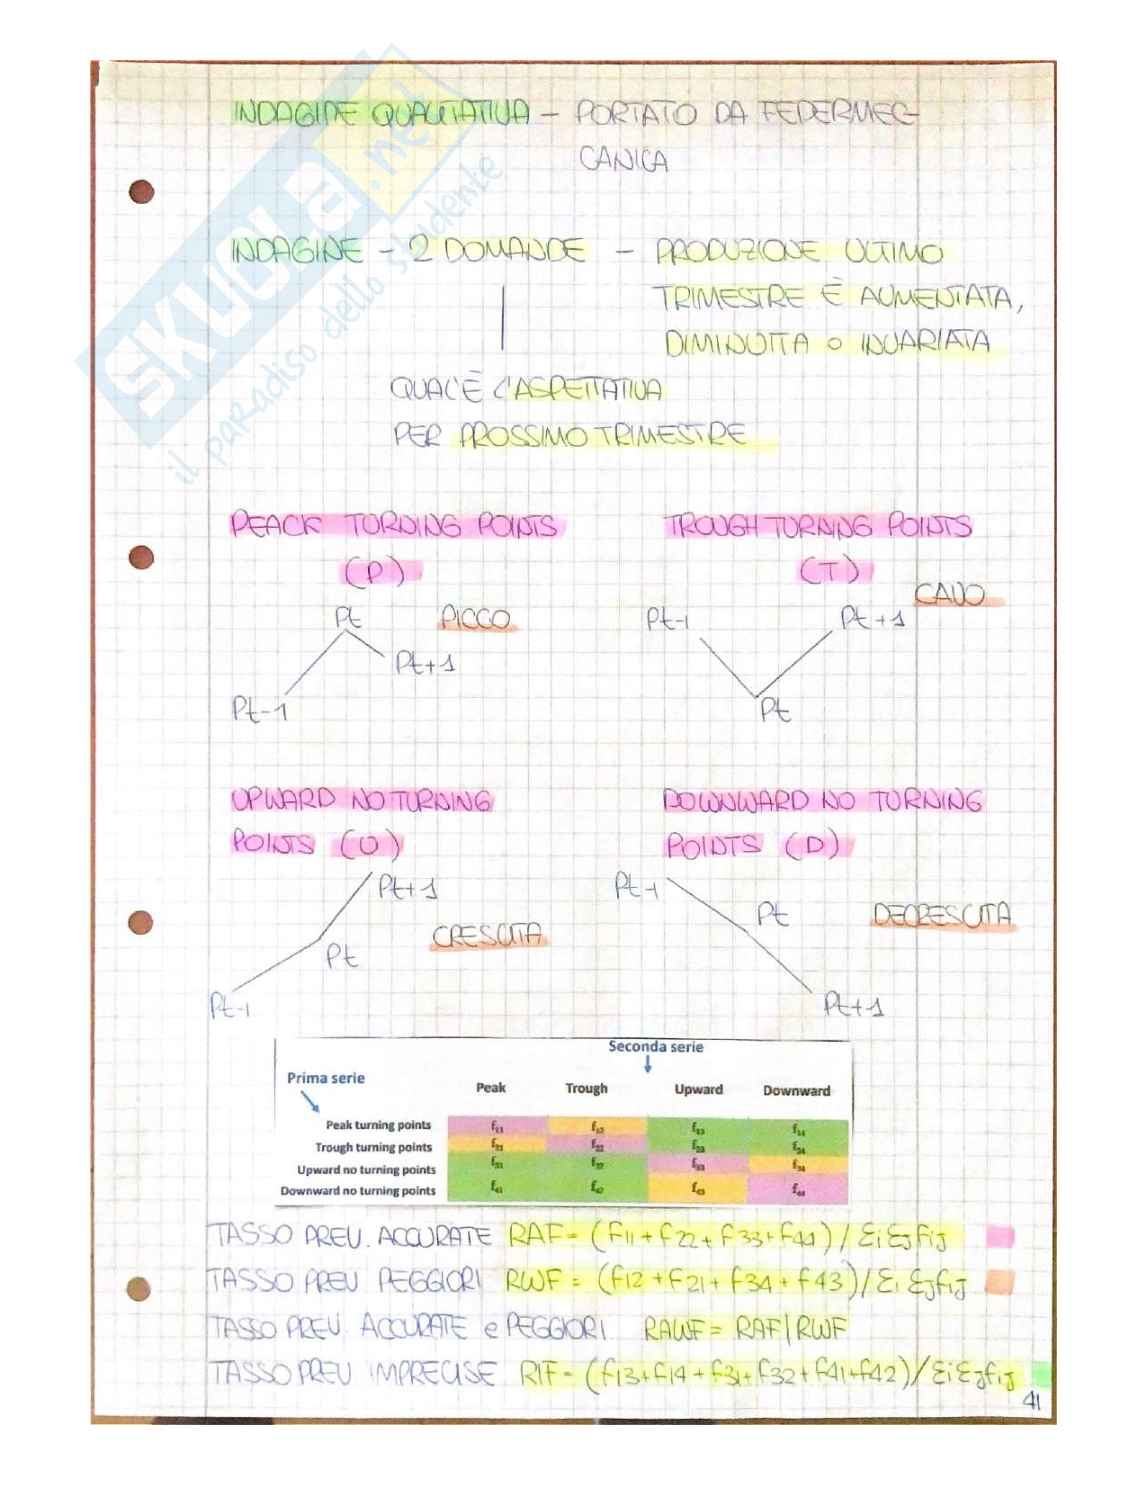 INDAGINE QUALITATIVA - PORTATO DA FEDERMEC-
CANICA
SKUOLA.net
il paradiso dello studente
INDAGINE - 2 DOMANDE - PRODUZIONE ULTIMO
TRIMESTRE È AUMENTATA,
DIMINUITA O INVARIATA
QUAL'È L'ASPETTATIVA
PER PROSSIMO TRIMESTRE
PEACK TURNING POINTS
(P)
TROUGH TURNING POINTS
(T)
Pt PICCO
Pt+1
Pt-1
CAVO
Pt-1 Pt+1
Pt
UPWARD NO TURNING
POINTS (U)
DOWNWARD NO TURNING
POINTS (D)
Pt+1
CRESCITA
Pt
Pt-1
Pt-1
Pt DECRESCITA
Pt+1
Seconda serie
Prima serie
Peak Trough Upward Downward
Peak turning points f11 f12 f13 f14
Trough turning points f21 f22 f23 f24
Upward no turning points f31 f32 f33 f34
Downward no turning points f41 f42 f43 f44
TASSO PREV. ACCURATE RAF = (f11+f22+f33+f44)/ΣiΣjfij
TASSO PREV PEGGIORI RWF = (f12+f21+f34+f43)/ΣiΣjfij
TASSO PREV. ACCURATE e PEGGIORI RAWF = RAF/RWF
TASSO PREV IMPRECISE RIF = (f13+f14+f31+f32+f41+f42)/ΣiΣjfij
41